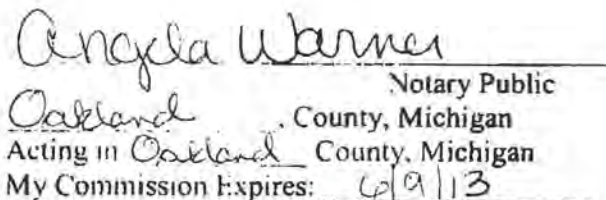 Angela Warner
Notary Public
Oakland, County, Michigan
Acting in Oakland County, Michigan
My Commission Expires: 6/9/13